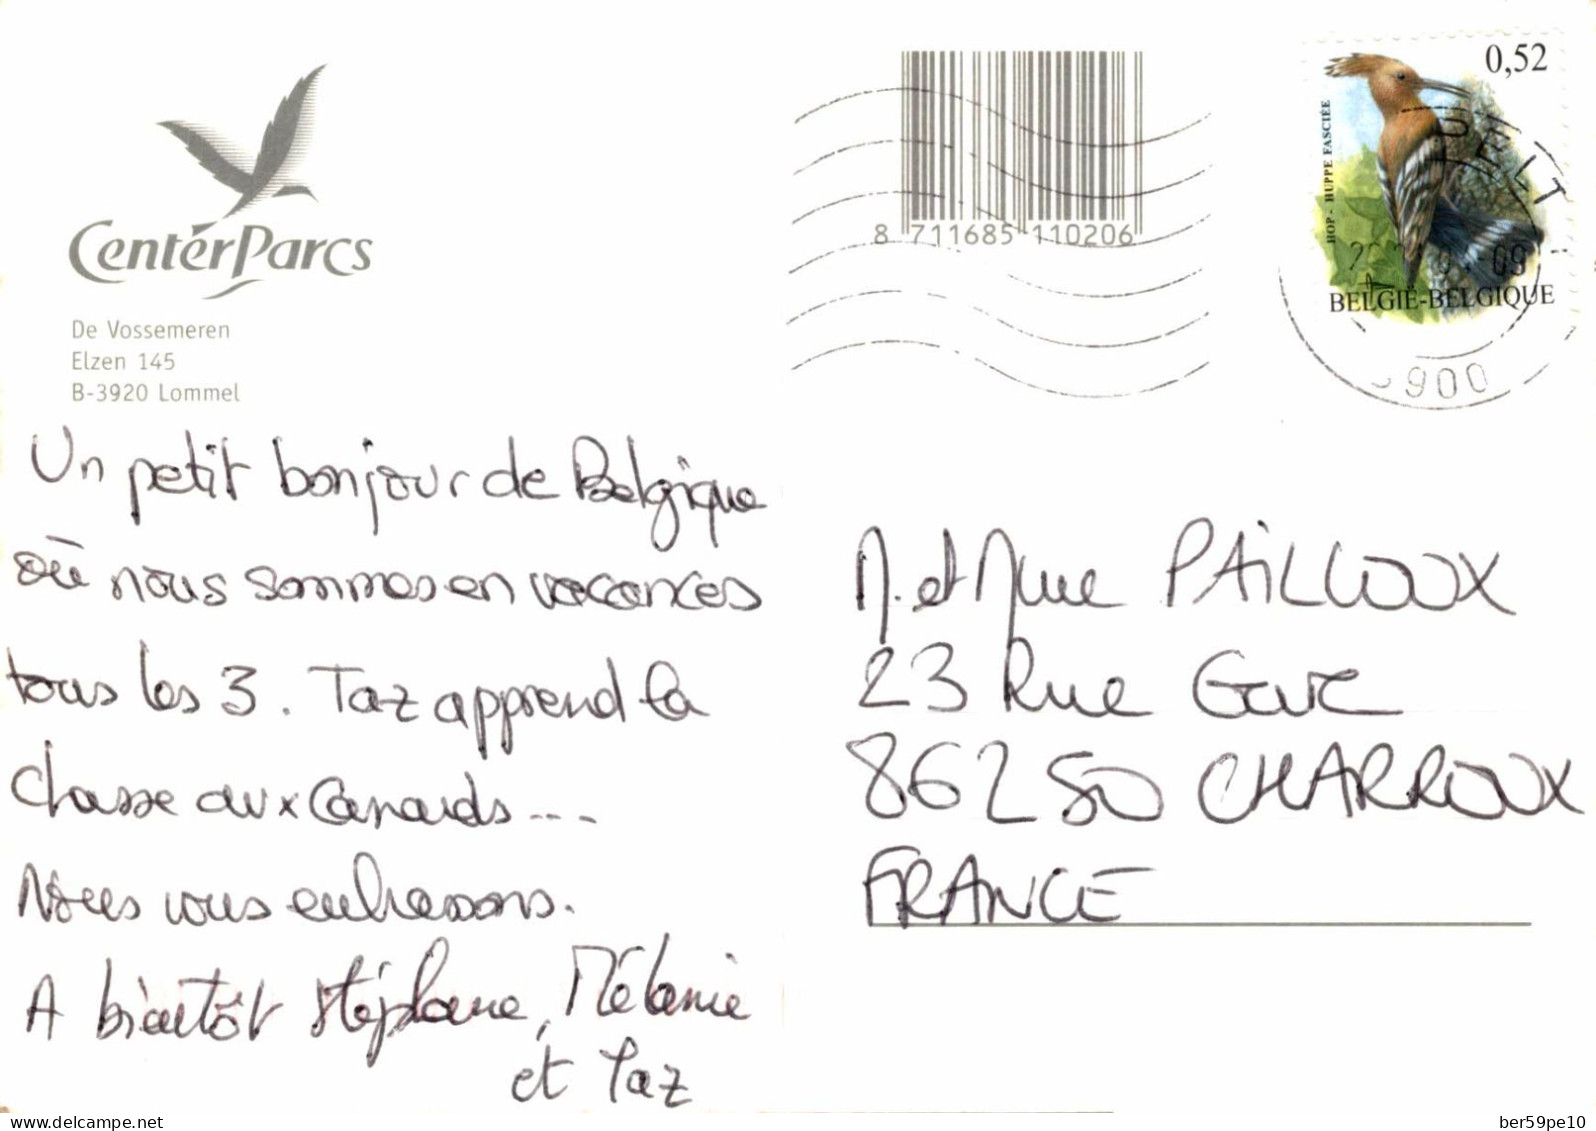 CenterParcs
De Vossemeren
Elzen 145
B-3920 Lommel
8 711685 110206
0,52
HOP - HUPPE FASCIÉE
BELGIË-BELGIQUE
900
Un petit bonjour de Belgique
où nous sommes en vacances
tous les 3. Taz apprend la
chasse aux Canards...
Nous vous embrassons.
A bientôt Stéphane, Mélanie
et Taz
M. et Mme PAILLOUX
23 Rue
86250 CHARROUX
FRANCE
delcampe.net
ber59pe10